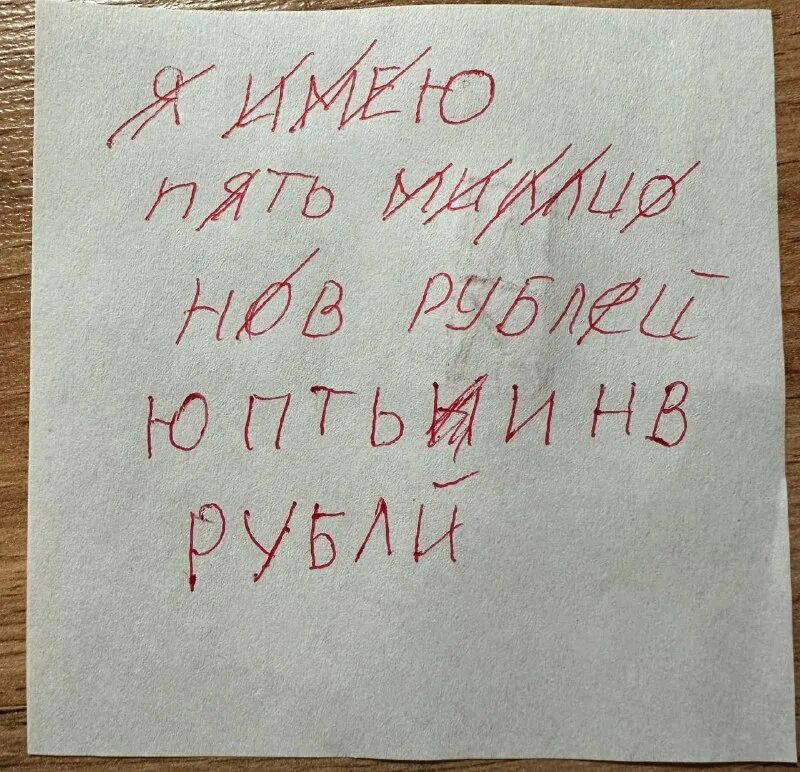 Я ИМЕЮ
ПЯТЬ МИЛЛИО
НОВ РУБЛЕЙ
ЮПТЬИНВ
РУБЛЙ